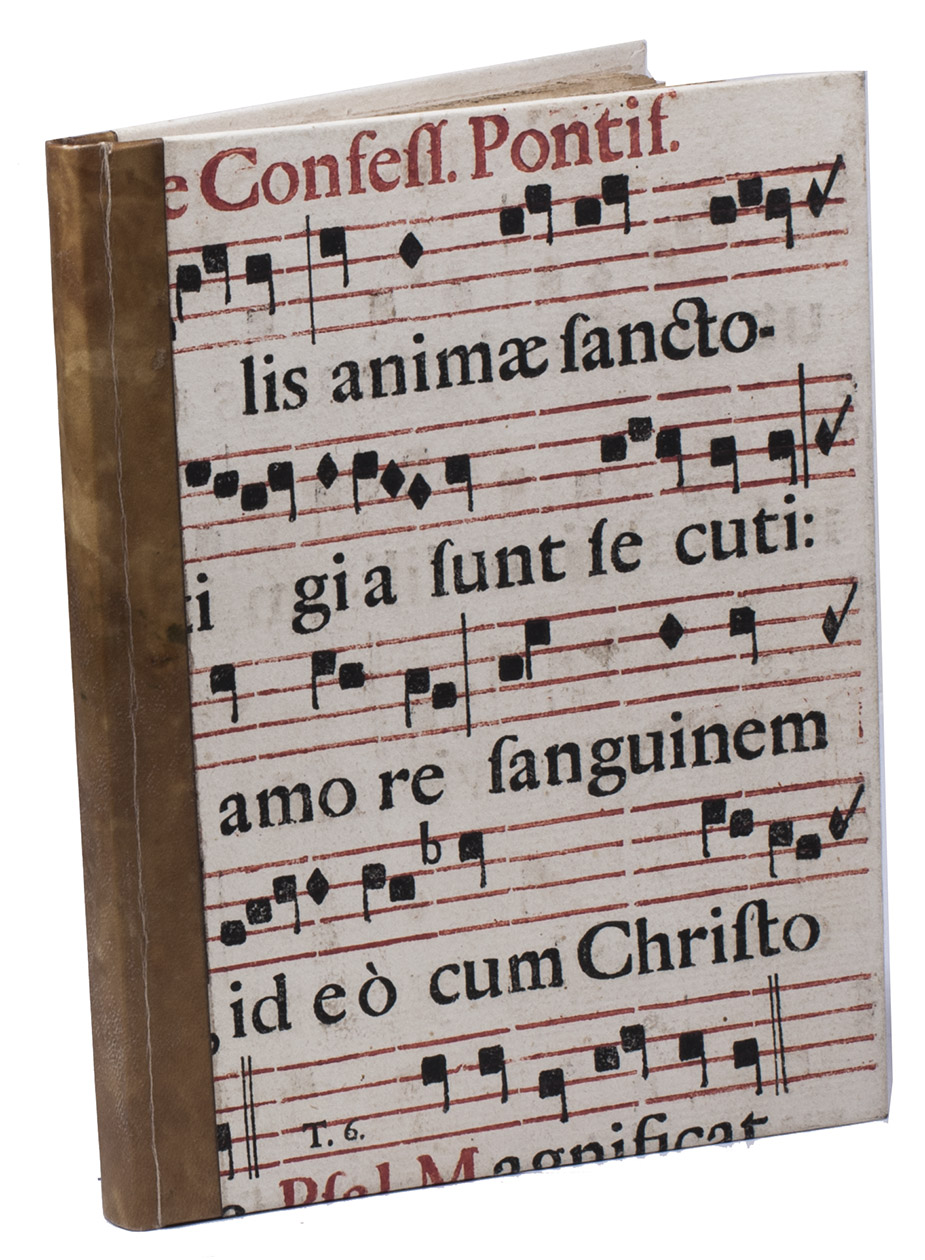 e Confeſſ. Pontif.
lis animæ ſancto-
ti gi a ſunt ſe cuti:
amo re ſanguinem
b
, id e ò cum Chriſto
T. 6.
Pſal. Magnificat